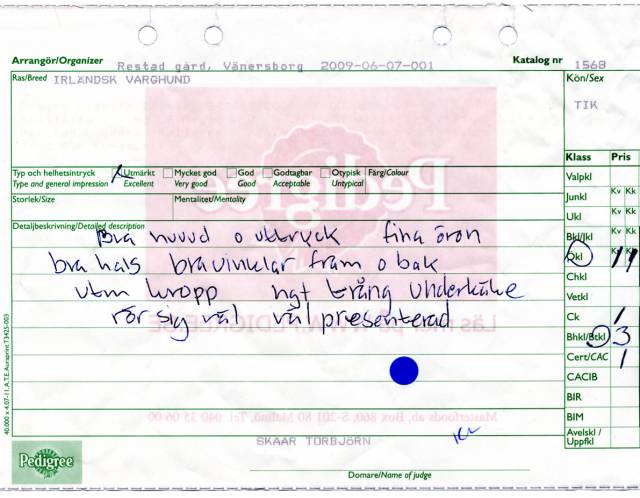 Arrangör/Organizer
Restad gård, Vänersborg 2009-06-07-001
Katalog nr 1568
Ras/Breed IRLÄNDSK VARGHUND
Kön/Sex
TIK
Klass Pris
Typ och helhetsintryck Utmärkt Mycket god God Godtagbar Otypisk Färg/Colour
Type and general impression Excellent Very good Good Acceptable Untypical
Valpkl
Storlek/Size Mentalitet/Mentality
Junkl Kv Kk
Ukl
Detaljbeskrivning/Detailed description
Bra huvud o uttryck fina öron
Bkl/Jkl Kv Kk
bra hals bra vinklar fram o bak
Ökl 1 1
Chkl
utm kropp ngt trång underkäke
Vetkl
rör sig väl väl presenterad
Ck 1
Bhkl/Btkl 3
Cert/CAC 1
CACIB
BIR
BIM
Avelskl / Uppfkl
Masterfoods ab, Box 860, S-201 80 Malmö, Tel. 040 35 06 00
40.000 x 4.07-11. A.T.E. Auraprint T3425-003
SKAAR TORBJÖRN
Pedigree
Pedigree
Domare/Name of judge